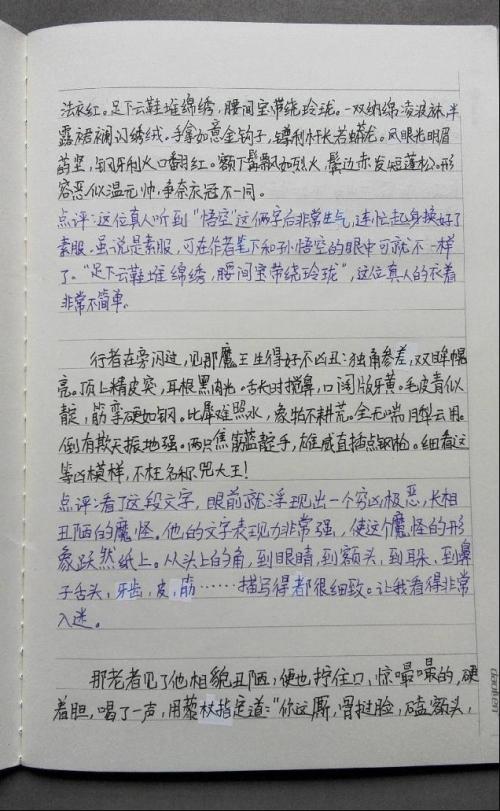 法衣红。足下云鞋堆绵绣，腰间宝带绕玲珑。一双纳绵凌波袜，半
露裙襕闪绣绒。手拿如意金钩子，鐏利杆长若蟒龙。凤眼光明眉
菂竖，钢牙利火口翻红。额下髯飘如烈火，鬓边赤发短蓬松。形
容恶似温元帅，争奈衣冠不一同。
点评：这位真人听到“悟空”这俩字后非常生气，连忙起身换好了
素服。虽说是素服，可在作者笔下和孙悟空的眼中可就不一样
了。“足下云鞋堆绵绣，腰间宝带绕玲珑”，这位真人的衣着
非常不简单。
行者在旁闪过，见那魔王生得好不凶丑：独角参差，双眸幌
亮。顶上粗皮突，耳根黑肉光。舌长时搅鼻，口阔版牙黄。毛皮青似
靛，筋挛硬如钢。比犀难照水，象牯不耕荒。全无喘月犁云用，
倒有欺天振地强。两只焦筋蓝靛手，雄威直挺点钢枪。细看这
等凶模样，不枉名称兕大王！
点评：看了这段文字，眼前就浮现出一个穷凶极恶，长相
丑陋的魔怪，他的文字表现力非常强，使这个魔怪的形
象跃然纸上。从头上的角，到眼睛，到额头，到耳朵，到鼻
子舌头，牙齿，皮，筋……描写得都很细致。让我看得非常
入迷。
那老者见了他相貌丑陋，便也拧住口，惊嘬嘬的，硬
着胆，喝了一声，用藜杖指定道：“你这厮，骨挝脸，磕额头，